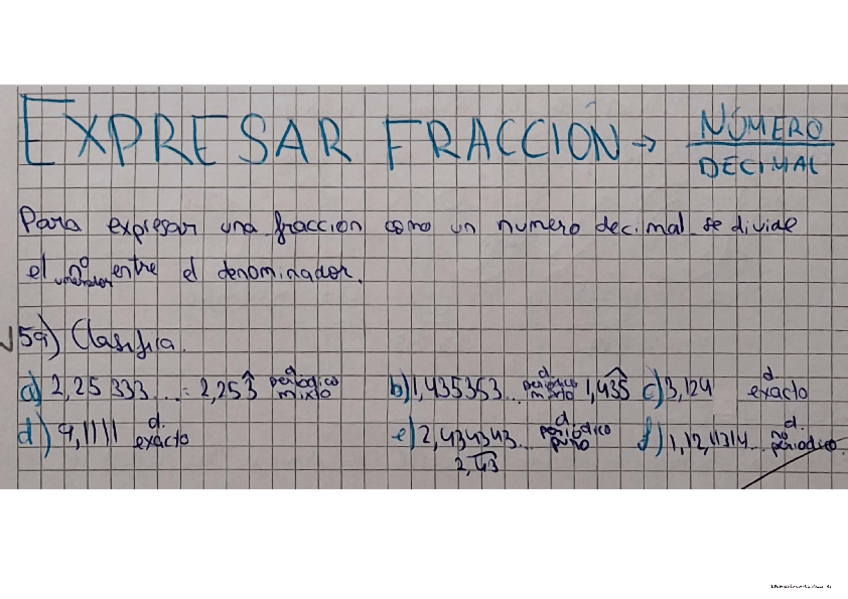 EXPRESAR FRACCIÓN → NÚMERO / DECIMAL
Para expresar una fraccion como un numero decimal se divide
el nº entre el denominador.
59) Clasifica.
a) 2,25 333... = 2,253̂ d. periodico mixto b) 1,435353... d. periodico mixto 1,435̂ c) 3,124 d. exacto
d) 9,1111 d. exacto e) 2,434343... d. periódico puro f) 1,12,11314... d. no periodico.
2,43̂